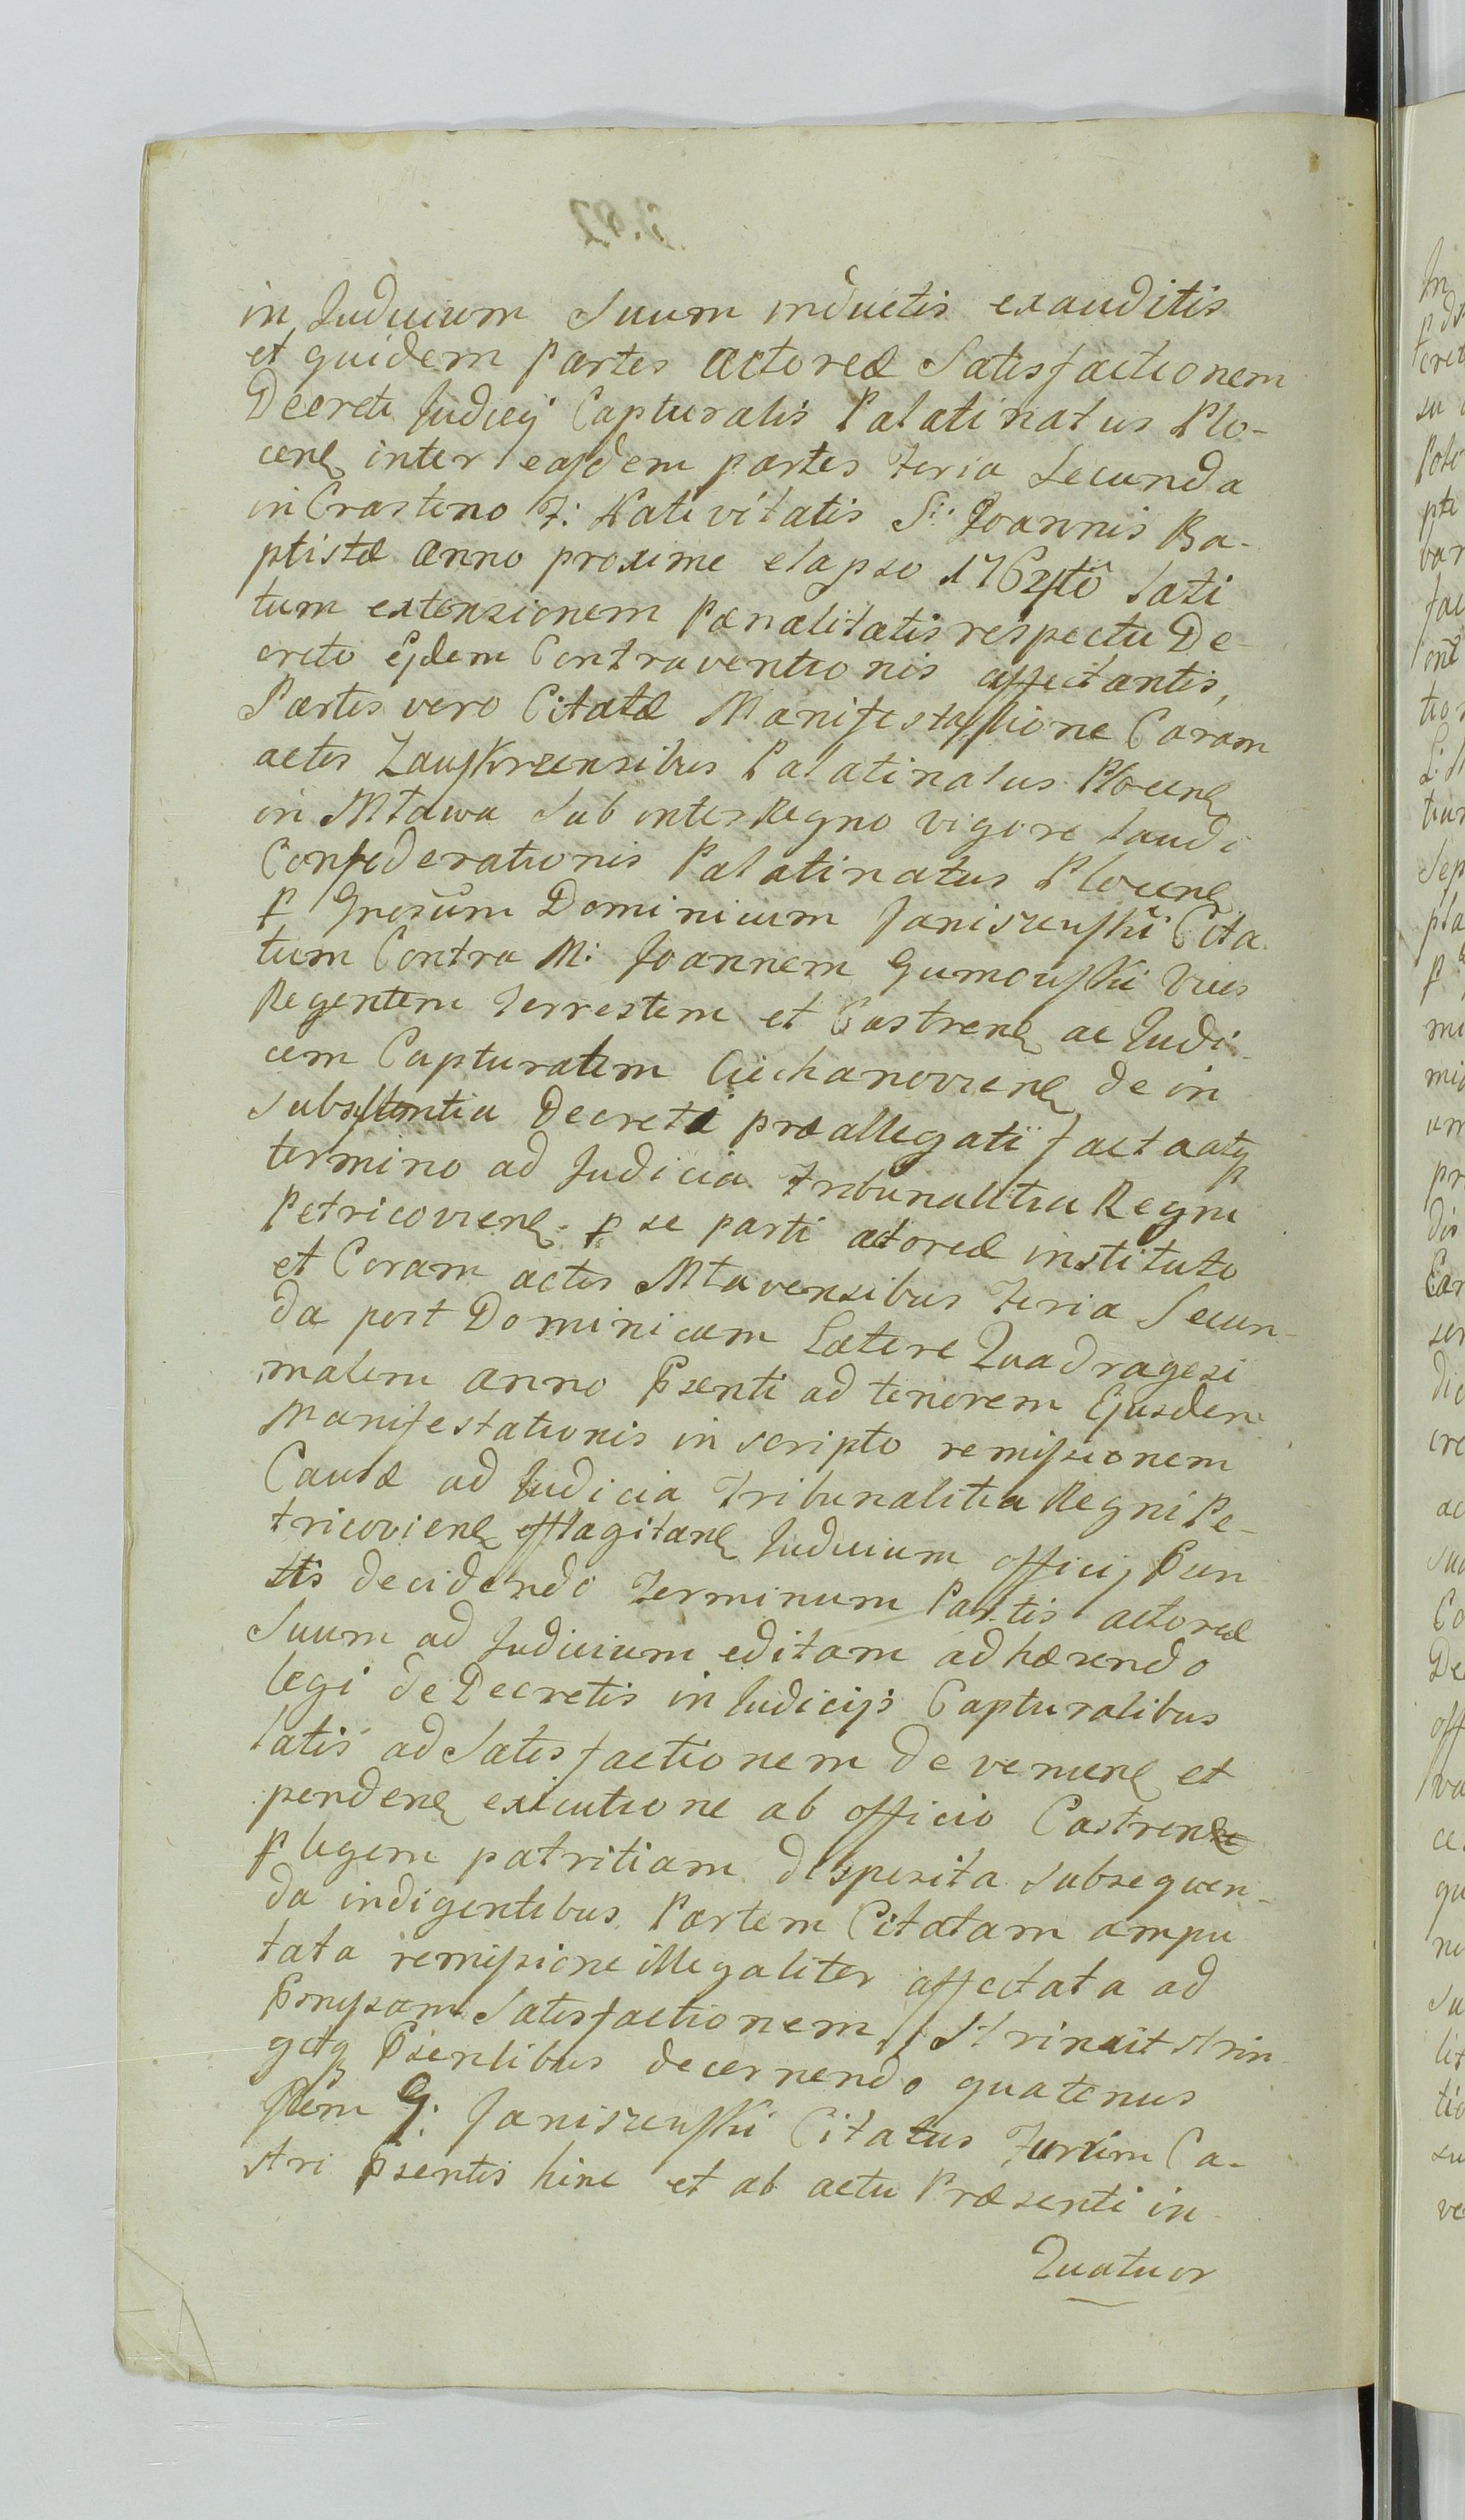 in Judicium Suum inductis exauditis
et quidem Partes Actoreæ Satisfactionem
Decreti Judicij Capturalis Palatinatus Plo-
cen inter easdem partes Feria Secunda
in Crastino F: Nativitatis Sti: Joannis Ba-
ptistæ Anno proxime elapso 1764tô lati
tum extensionem Pænalitatis respectu De-
creto Ejdem Contraventionis affectantis,
Partes vero Citatæ Manifestassione Coram
actis Zauskrzensibus Palatinatus Plocen
in Mława Sub inter Regno vigore Laudi
Confederationis Palatinatus Plocen
p Grosum Dominicum Janiszewski Cita
tum Contra M: Joannem Gumowski Vices
Regentem Terrestem et Castren ac Judi-
cem Capturalem Ciechanovien de in
Substantia Decreti præallegati facta atq
termino ad Judicia Tribunalitia Regni
Petricovien p se parti actoreæ instituto
et Coram actis Mlavensibus Feria Secun-
da post Dominicam Lætere Quadragesi
malem anno Psenti ad tenorem Ejusdem
Manifestationis in scripto remissionem
Causæ ad Judicia Tribunalitia Regni Pe-
tricovien efflagitan Judicium officij Psen
tis decidendo Terminum Partis actoreæ
Suum ad Judicium editam adhærendo
legi de Decretis in Judicijs Capturalibus
latis ad Satisfactionem devenien et
penden executione ab officio Castrense
p legem patritiam disposita subsequen-
da indigentibus Partem Citatam ampu
tata remissione illegaliter affectata ad
Pmissam Satisfactionem Strinxit strin
gitq Psentibus decernendo quatenus
Idem G: Janiszewski Citatus Turrim Ca-
stri Psentis hinc et ab actu Præsenti in
Quatuor